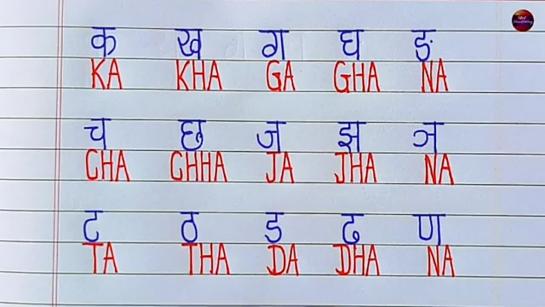 क ख ग घ ङ
KA KHA GA GHA NA
च छ ज झ ञ
CHA CHHA JA JHA NA
ट ठ ड ढ ण
TA THA DA DHA NA